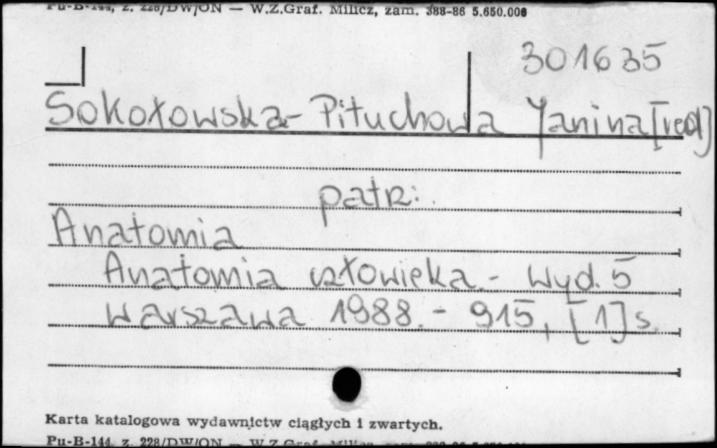 Pu-B-144, z. 228/DW/ON — W.Z.Graf. Milicz, zam. 388-86 5.650.000
301635
Sokołowska-Pituchowa Janina [red]
patr:
Anatomia
Anatomia człowieka.- Wyd. 5
Warszawa 1988.- 915, [1] s.
Karta katalogowa wydawnictw ciągłych i zwartych.
Pu-B-144, z. 228/DW/ON — W.Z.Graf. Milicz, zam.